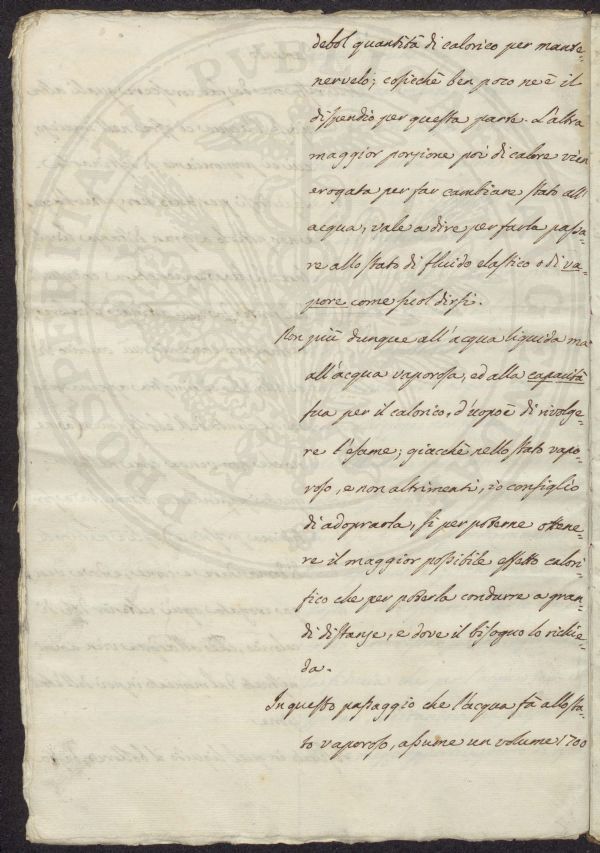 debol quantità di calorico per mante-
nervelo; cosicchè ben poco ne è il
dispendio per questa parte. L'altra
maggior porzione poi di calore vien
erogata per far cambiare stato all'
acqua, vale a dire per farla passa-
re allo stato di fluido elastico o di va-
pore come suol dirsi.
Non più dunque all'acqua liquida ma
all'acqua vaporosa, ed alla capacità
sua per il calorico, d'uopo è di rivolge-
re l'esame; giacchè nello stato vapo-
roso, e non altrimenti, io consiglio
di adoprarla, si per poterne ottene-
re il maggior possibile effetto calori-
fico che per poterla condurre a gran-
di distanze, e dove il bisogno lo richie-
da.
In questo passaggio che l'acqua fà allo sta-
to vaporoso, assume un volume 1700
PROSPERITATI PUBLICAE